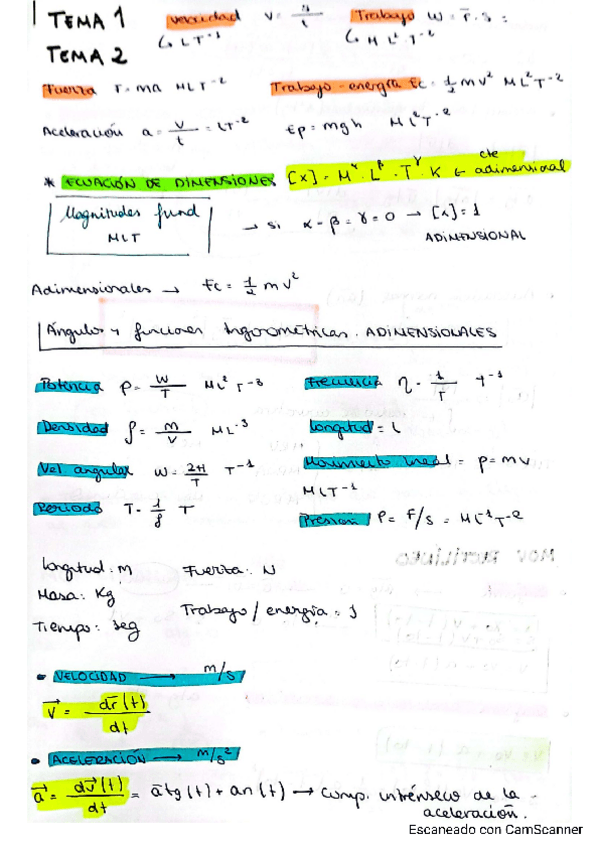 TEMA 1 velocidad v = s/t Trabajo W = F · s =
↳ LT⁻¹ ↳ M L² T⁻²
TEMA 2
Fuerza F = ma MLT⁻² Trabajo-energía Ec = 1/2 mv² ML²T⁻²
Aceleración a = v/t = LT⁻² Ep = mgh ML²T⁻²
* ECUACIÓN DE DIMENSIONES [x] = M^α · L^β · T^γ · K ← cte adimensional
Magnitudes fund
MLT
→ si α - β = γ = 0 → [x] = 1
ADIMENSIONAL
Adimensionales → Ec = 1/2 mv²
Ángulos y funciones trigonométricas. ADIMENSIONALES
Potencia P = W/T ML²T⁻³ Frecuencia η = 1/T T⁻¹
Densidad ρ = m/V ML⁻³ Longitud = L
Vel angular W = 2π/T T⁻¹ Movimiento lineal = p = mv
MLT⁻¹
Periodo T = 1/f T Presion P = F/S = ML⁻¹T⁻²
Longitud: m Fuerza: N
Masa: Kg
Trabajo / energía: J
Tiempo: seg
• VELOCIDAD → m/s
v = dr(t)/dt
• ACELERACIÓN → m/s²
a = dv(t)/dt = atg(t) + an(t) → comp. intrínseco de la
aceleración.
Escaneado con CamScanner